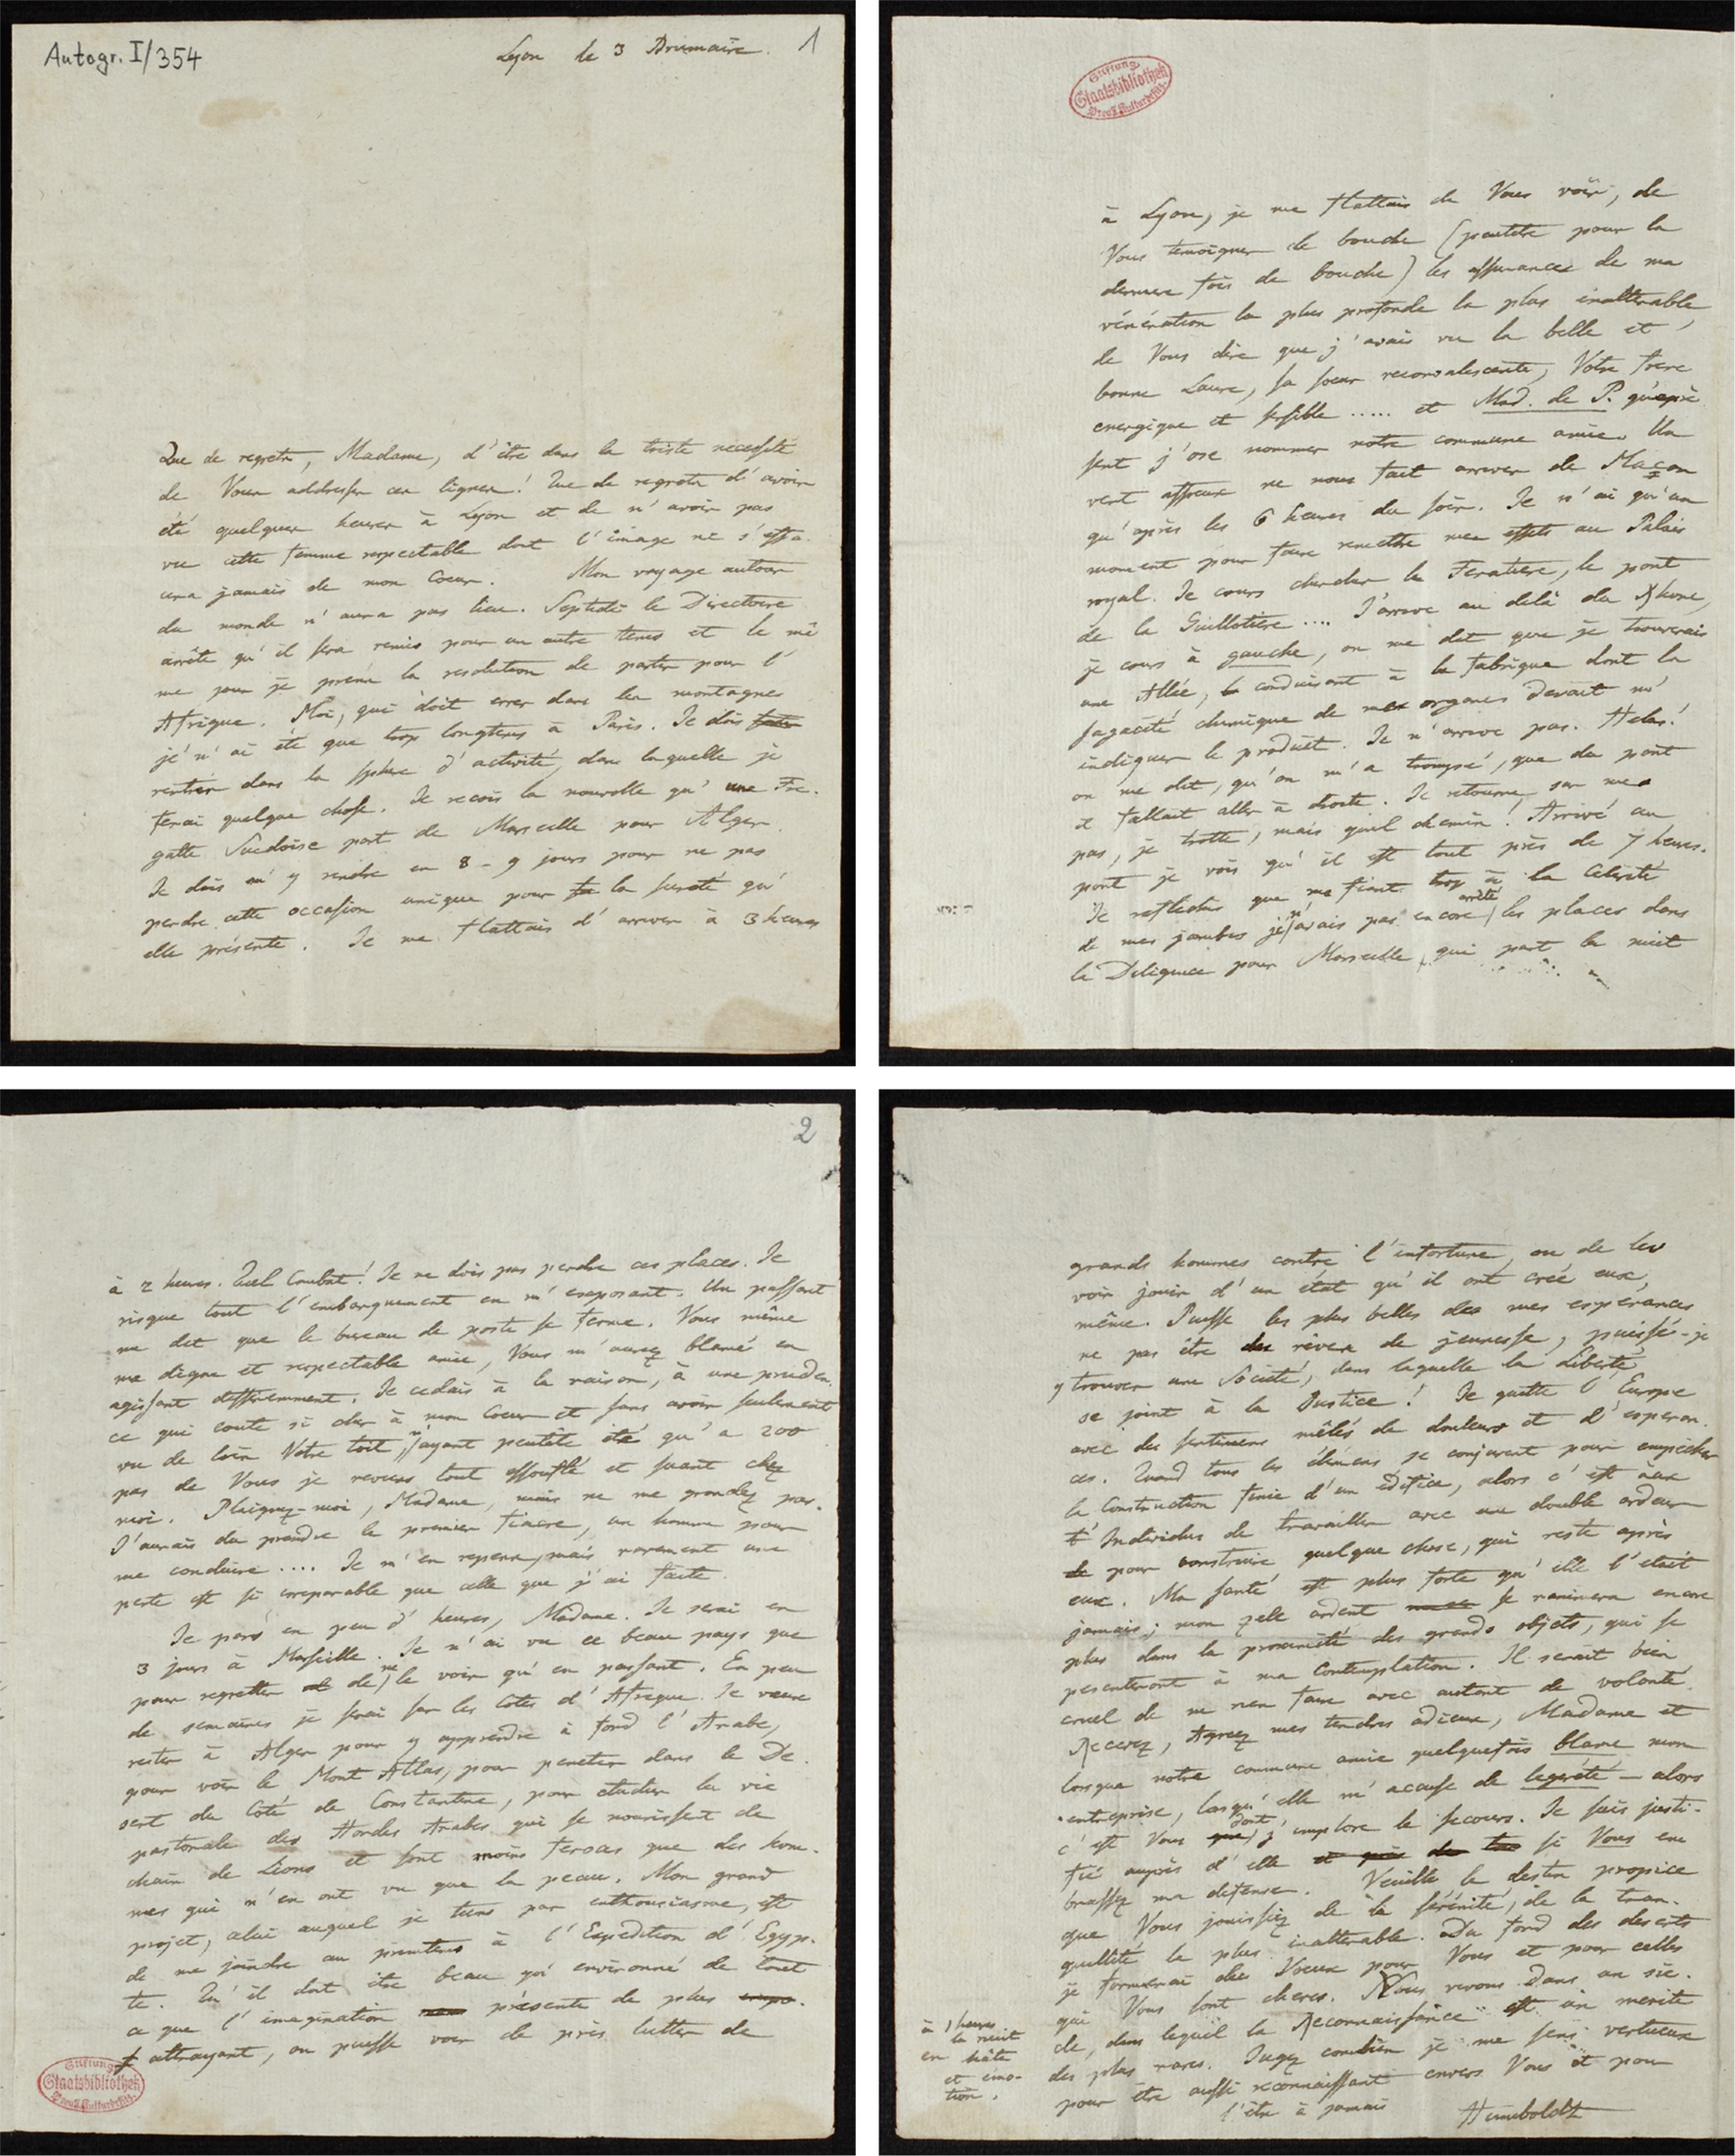 Autogr. I/354
Lyon le 3 Brumaire. 1
Que de regrets, Madame, d'être dans la triste necessité
de Vous addresser ces lignes! Que de regrets d'avoir
été quelques heures à Lyon et de n'avoir pas
vu cette femme respectable dont l'image ne s'effa-
cera jamais de mon Coeur. Mon voyage autour
du monde n'aura pas lieu. Septidi le Directoire
arrête qu'il sera remis pour un autre tems et le mê
me jour je prens la resolution de partir pour l'
Afrique. Moi, qui doit errer dans les montagnes
je n'ai été que trop longtems à Paris. Je dois
rentrer dans la sphere d'activité, dans laquelle je
ferai quelque chose. Je recois la nouvelle qu'une Fre-
gatte Suedoise part de Marseille pour Alger.
Je dois m'y rendre en 8-9 jours pour ne pas
perdre cette occasion unique pour la sureté qu'
elle présente. Je me flattais d'arriver à 3 heures
Stiftung
Staatsbibliothek
Preuß. Kulturbesitz
à Lyon, je me flattais de Vous voir, de
Vous temoigner de bouche (peutêtre pour la
derniere fois de bouche) les assurances de ma
vénération la plus profonde la plus inalterable
de Vous dire que j'avais vu la belle et
bonne Laure, sa soeur reconvalescente, Votre frere
energique et sensible ..... et Mad. de P. qu'apré
sent j'ose nommer notre commune amie. Un
vent affreux ne nous fait arriver de Macon
qu'après les 6 heures du soir. Je n'ai qu'un
moment pour faire remettre mes effets au Palais
royal. Je cours chercher la Feratiere, le pont
de la Guillotiere .... J'arrive au delà du Rhone,
je cours à gauche, on me dit que je trouverais
une Allée, conduisant à la fabrique dont la
sagacité chimique de mes organes devait m'
indiquer le produit. Je n'arrive pas. Helas!
on me dit, qu'on m'a trompé, que du pont
il fallait aller à droite. Je retourne sur mes
pas, je trotte, mais quel chemin! Arrivé au
pont je vois qu'il est tout près de 7 heures.
Je reflechis que me fiant trop à la Célérité
de mes jambes je n'avais pas encore arrêté les places dans
la Diligence pour Marseille, qui part la nuit
2
à 2 heures. Quel Combat! Je ne dois pas perdre ces places. Je
risque tout l'embarquement en m'exposant. Un passant
me dit que le bureau de poste se ferme. Vous même
ma digne et respectable amie, Vous m'auriez blamé en
agissant differemment. Je cedais à la raison, à une pruden-
ce qui coute si cher à mon Coeur et sans avoir seulement
vu de loin Votre toit, n'ayant peutêtre été qu'a 200
pas de Vous je reviens tout essouflé et suant chez
moi. Plaignez-moi, Madame, mais ne me grondez pas.
J'aurais du prendre le premier fiacre, un homme pour
me conduire .... Je m'en repens, mais rarement une
perte est si irreparable que celle que j'ai faite.
Je pars en peu d'heures, Madame. Je serai en
3 jours à Marseille. Je n'ai vu ce beau pays que
pour regretter de ne le voir qu'en passant. En peu
de semaines je serai sur les Côtes d'Afrique. Je veux
rester à Alger pour y apprendre à fond l'Arabe,
pour voir le Mont Atlas, pour penetrer dans le De-
sert du Coté de Constantine, pour etudier la vie
pastorale des Hordes Arabes qui se nourissent de
chair de Lions et sont moins feroces que des hom-
mes qui n'en ont vu que la peau. Mon grand
projet, celui auquel je tiens par enthousiasme, est
de me joindre au printems à l'Expedition d'Egyp-
te. Qu'il doit être beau qui environné de tout
ce que l'imagination présente de plus
attrayant, on puisse voir de près lutter de
Stiftung
Staatsbibliothek
Preuß. Kulturbesitz
grands hommes contre l'infortune, ou de les
voir jouir d'un état qu'il ont créé eux,
même. Puisse les plus belles des mes espérances
ne pas être des rêves de jeunesse, puissé-je
y trouver une Société, dans laquelle la Liberté
se joint à la Justice! Je quitte l'Europe
avec des sentimens mêlés de douleurs et d'esperan-
ces. Quand tous les élémens se conjurent pour empêcher
la Construction finie d'un édifice, alors c'est aux
Individus de travailler avec une double ardeur
pour construire quelque chose, qui reste après
eux. Ma santé est plus forte qu'elle l'etait
jamais; mon zele ardent se ranimera encore
plus dans la proximité des grands objets, qui se
presenteront à ma Contemplation. Il serait bien
cruel de ne rien faire avec autant de volonté.
Recevez, Agreez mes tendres adieux, Madame et
lorsque notre commune amie quelquefois blame mon
entreprise, lorsqu'elle m'accuse de legereté — alors
c'est Vous dont j'implore le secours. Je suis justi-
fié auprès d'elle si Vous em
brassez ma defense. Veuille le destin propice
que Vous jouissiez de la sérénité, de la tran-
quillité la plus inalterable. Du fond des deserts
je formerai des Voeux pour Vous et pour celles
qui Vous sont cheres. Nous vivons dans un sie-
cle, dans lequel la Reconnaissance est un merite
des plus rares. Jugez combien je me sens vertueux
pour être aussi reconnaissant envers Vous et pour
l'être à jamais Humboldt
à 1 heures
la nuit
en hâte
et emo-
tion.